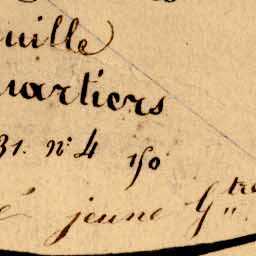 uille
uartiers
31. n° 4 150
é jeune G.tre